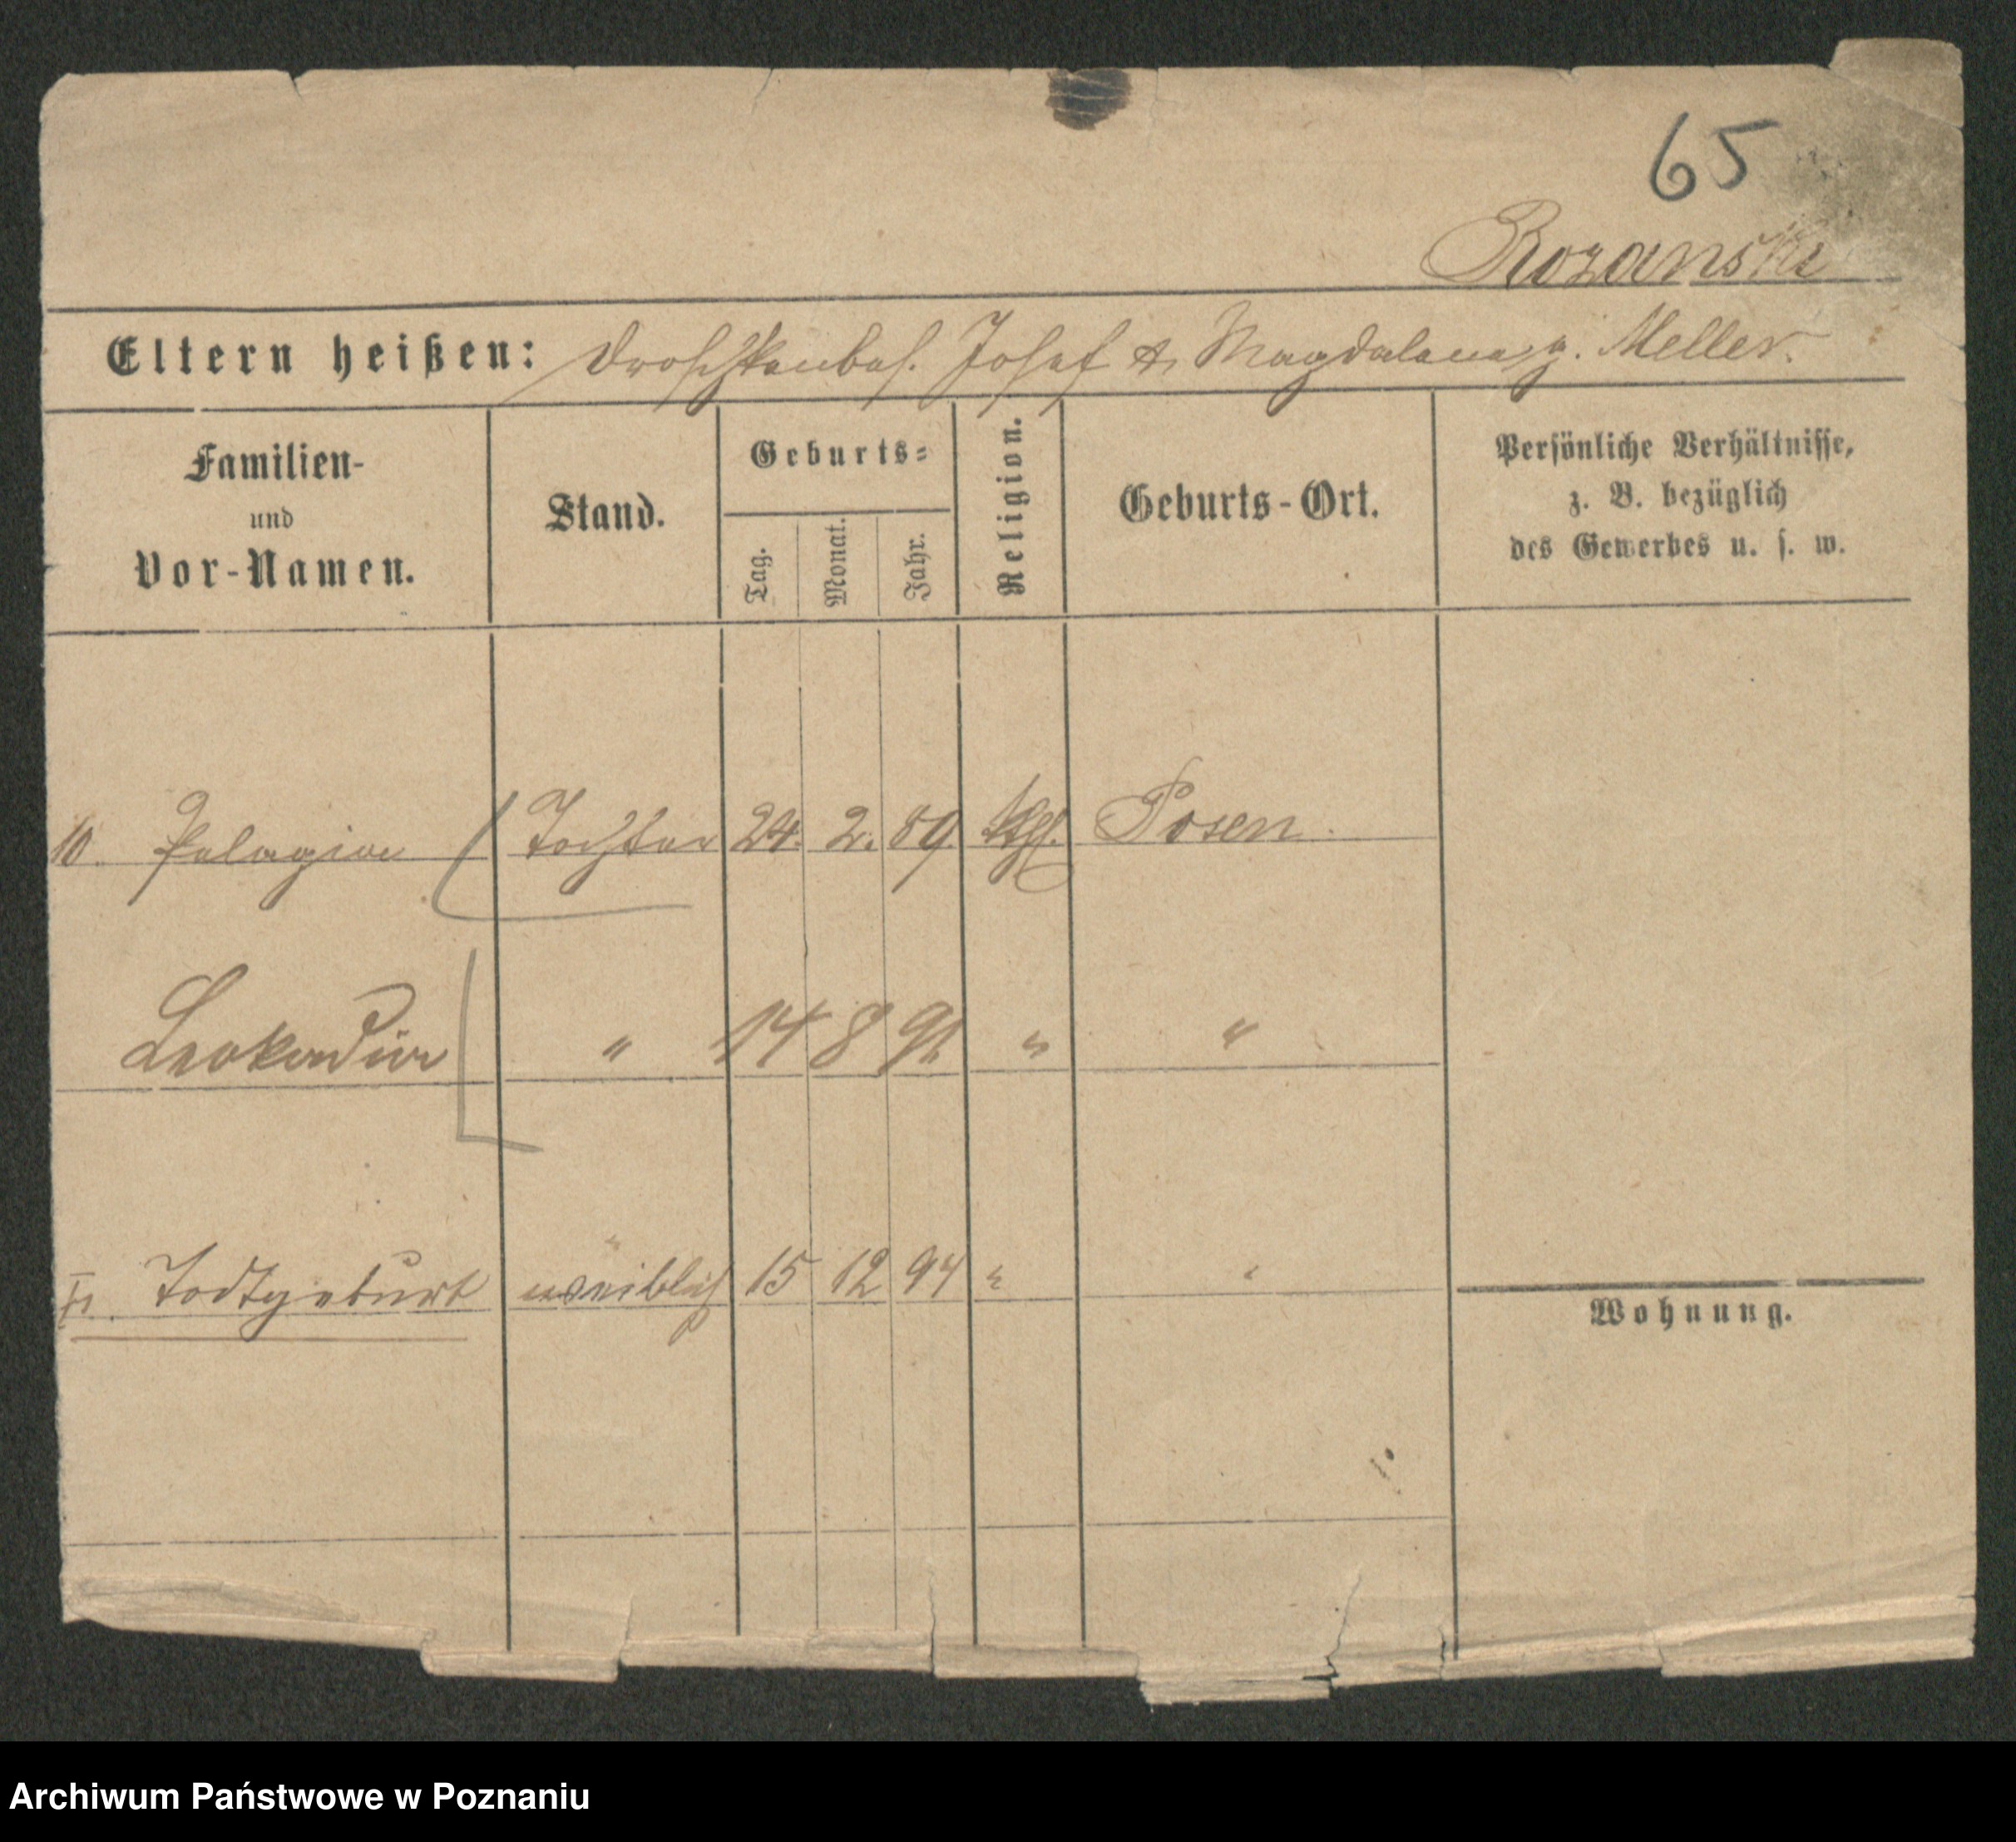 65
Rozanski
Eltern heißen: Droschkenbes. Josef & Magdalena g. Meller.
Familien-
und
Vor-Namen.
Stand.
Geburts-
Tag.
Monat.
Jahr.
Religion.
Geburts-Ort.
Persönliche Verhältnisse,
z. B. bezüglich
des Gewerbes u. s. w.
10. Pelagia Tochter 24. 2. 89. kth. Posen.
Leokadia " 14 8 91 " "
11. Todtgeburt weiblich 15 12 94 " "
Wohnung.
Archiwum Państwowe w Poznaniu